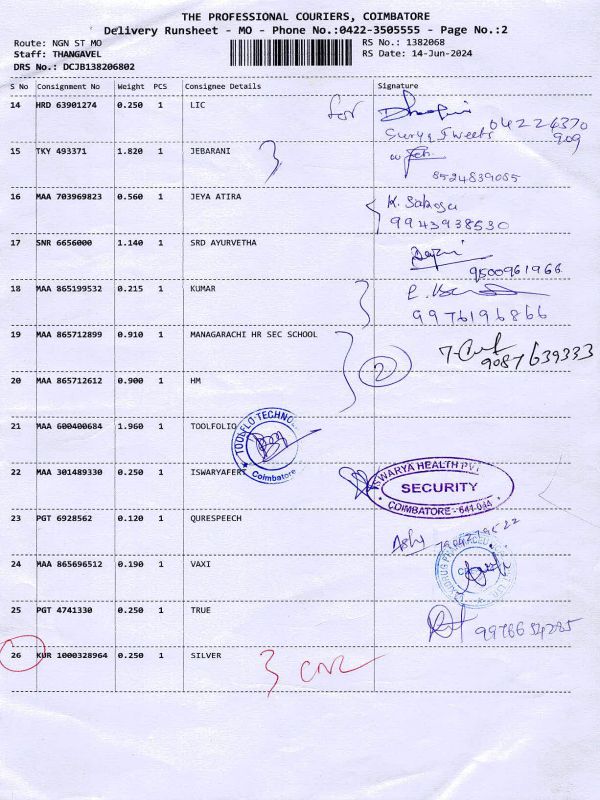 THE PROFESSIONAL COURIERS, COIMBATORE
Delivery Runsheet - MO - Phone No.:0422-3505555 - Page No.:2
Route: NGN ST MO
RS No.: 1382068
Staff: THANGAVEL
RS Date: 14-Jun-2024
DRS No.: DCJB138206802
S No Consignment No Weight PCS Consignee Details Signature
14 HRD 63901274 0.250 1 LIC for
Surya Tweets 04224370
909
15 TKY 493371 1.820 1 JEBARANI 3
8524839085
16 MAA 703969823 0.560 1 JEYA ATIRA K. Sakosu
9943938530
17 SNR 6656000 1.140 1 SRD AYURVETHA
9500961966
18 MAA 865199532 0.215 1 KUMAR
9976196866
19 MAA 865712899 0.910 1 MANAGARACHI HR SEC SCHOOL
9087639333
2
20 MAA 865712612 0.900 1 HM
21 MAA 600400684 1.960 1 TOOLFOLIO
TOOLFLO TECHNO
Coimbatore
22 MAA 301489330 0.250 1 ISWARYAFERT
ISWARYA HEALTH PVT
SECURITY
COIMBATORE - 641 044
23 PGT 6928562 0.120 1 QURESPEECH
24 MAA 865696512 0.190 1 VAXI
25 PGT 4741330 0.250 1 TRUE
9976634285
26 KUR 1000328964 0.250 1 SILVER